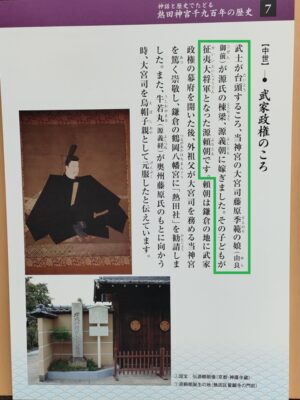 神話と歴史でたどる
熱田神宮千九百年の歴史
7
【中世】 ● 武家政権のころ
武士が台頭するころ、当神宮の大宮司藤原季範の娘(由良
御前)が源氏の棟梁、源義朝に嫁ぎました。その子どもが
征夷大将軍となった源頼朝です。頼朝は鎌倉の地に武家
政権の幕府を開いた後、外祖父が大宮司を務める当神宮
を篤く崇敬し、鎌倉の鶴岡八幡宮に「熱田社」を勧請しま
した。また、牛若丸(源義経)が奥州藤原氏のもとに向かう
時、大宮司を烏帽子親として元服したと伝えています。
①国宝 伝源頼朝像(京都・神護寺蔵)
②源頼朝誕生の地(熱田区誓願寺の門前)